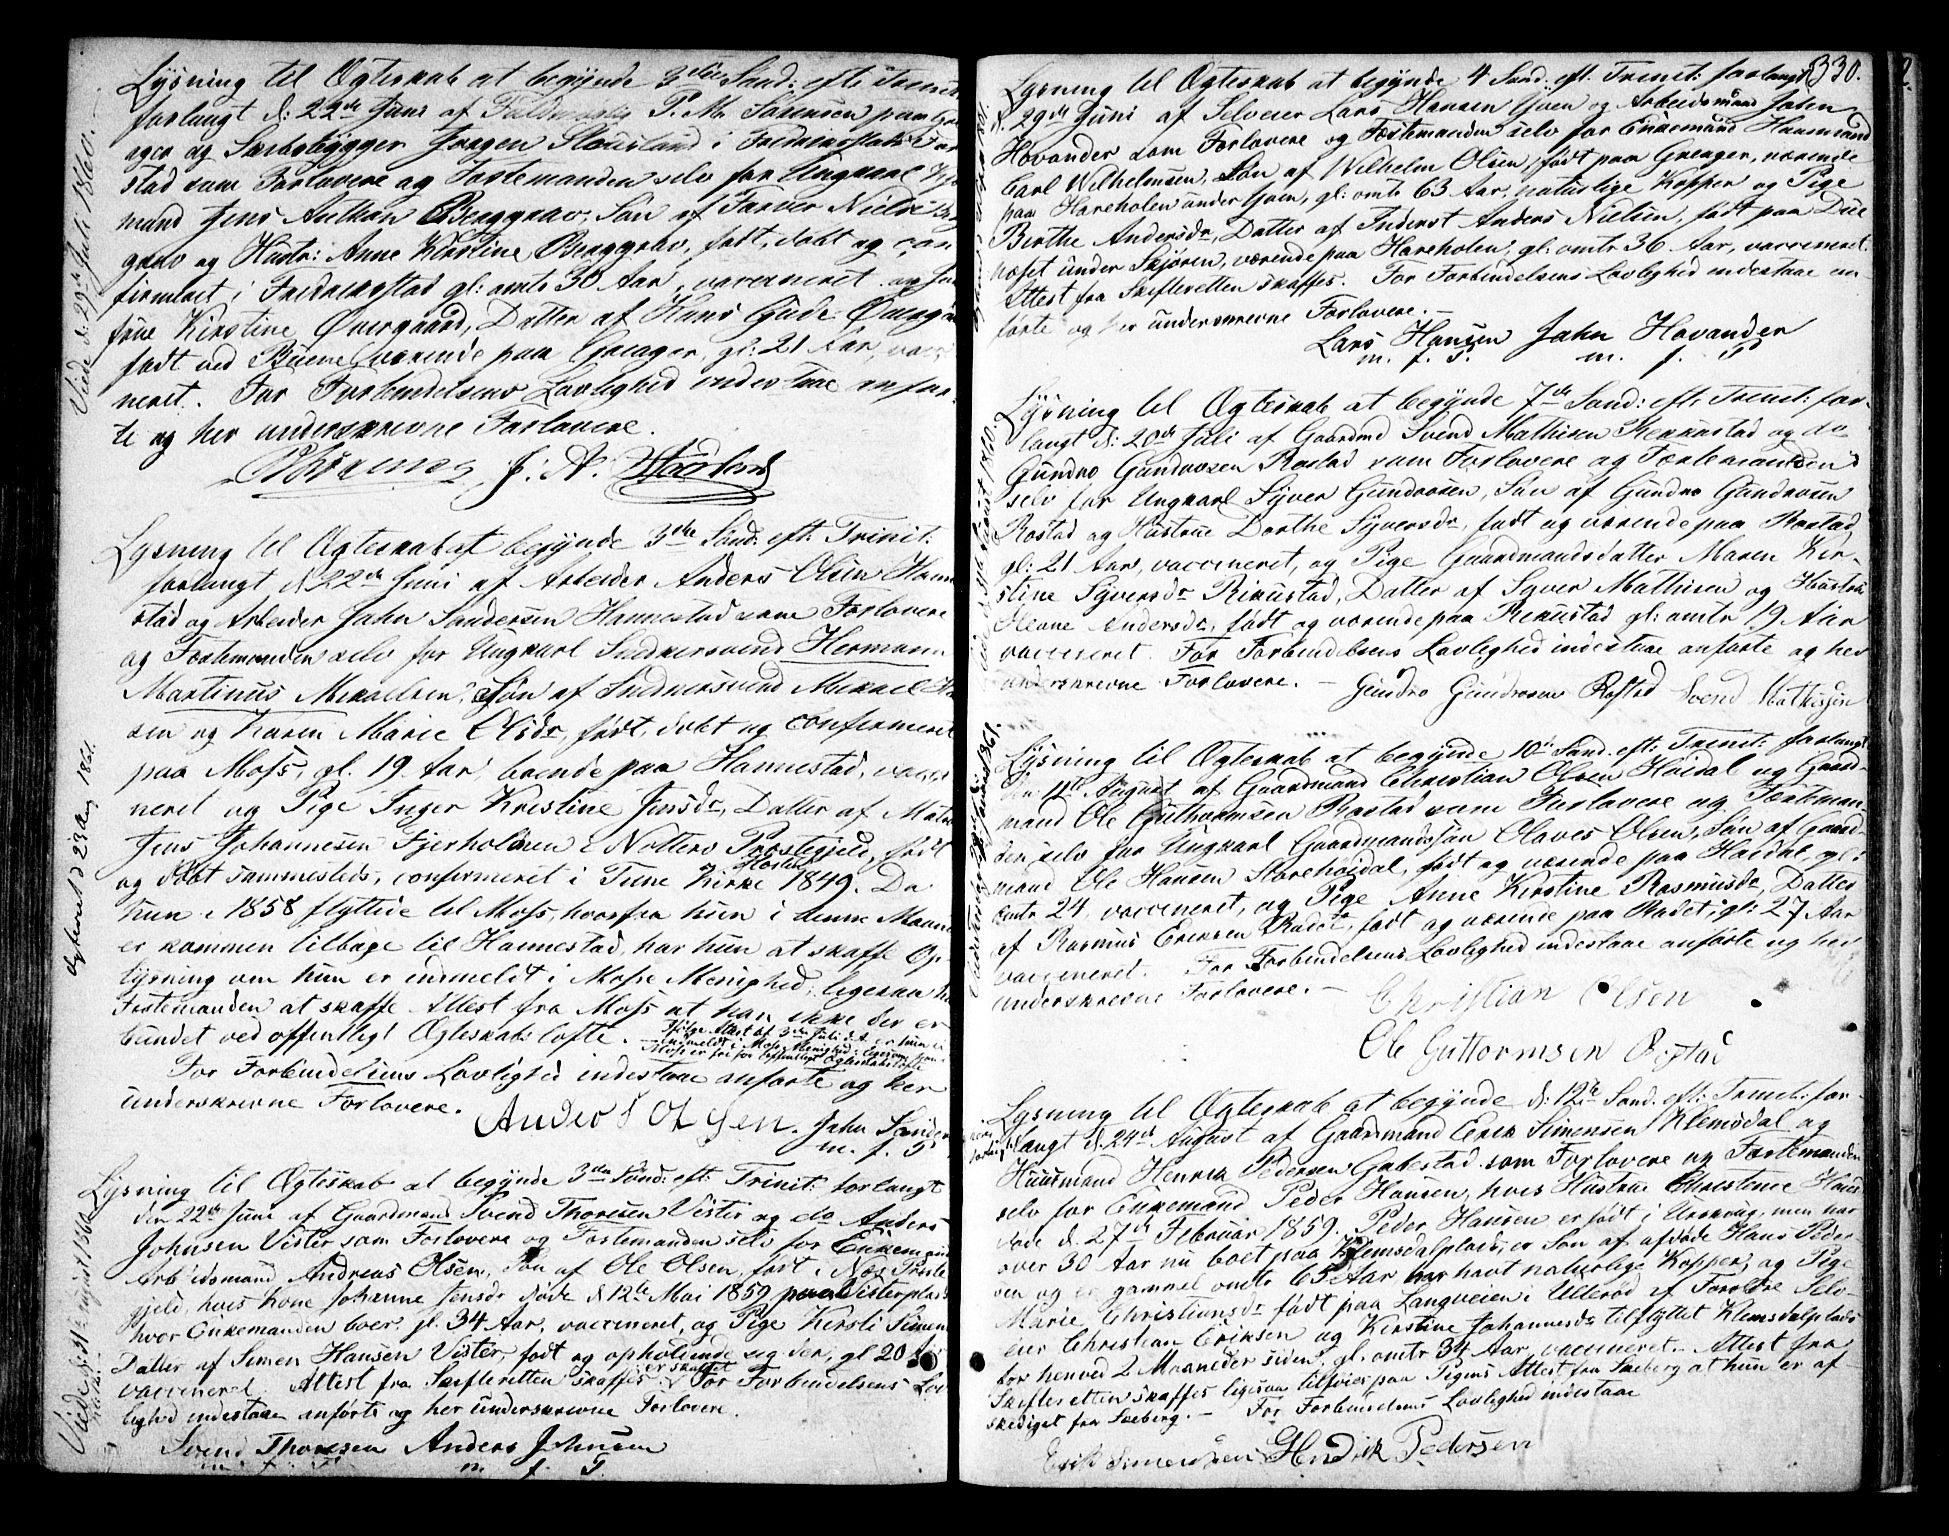 Lysning til Ægteskab at begynde 3die Sønd: eft: Trinit:
forlangt d: 22de Juni af P. M. Sørensen paa
ager og Skibsbygger Jørgen Staarland i Fredrikstad
stad som Forlovere og Festemanden selv for Ungkarl
mand Jens Anthon Berggrav, Søn af Farver Niels
grav og Hustr: Anne Kirstine Berggrav, født, døbt og con
firmeret i Fredrikstad gl: omtr 30 Aar, vaccineret og
frue Kirstine Overgaard, Datter af Hans Gude Overgaa
født ved værende paa Greager, gl: 21 Aar, vacci
neret. For Forbindelsens Lovlighed indestaae anfør-
te og her underskrevne Forlovere.
J. A. Staarland
Viede d: 29de Juli 1860.
Lysning til Ægteskab at begynde 3die Sønd: eft: Trinit:
forlangt d: 22de Juni af Arbeider Anders Olsen Hanne
stad og Arbeider John Sandersen Hannestad som Forlovere
og Festemanden selv for Ungkarl Snidkersvend Hermann
Martinus Mikaelsen, Søn af Snidkersvend Mikael
sen og Karen Marie Olsdr, født, døbt og confirmeret
paa Moss, gl. 19 Aar, boende paa Hannestad, vacci
neret og Pige Inger Kristine Jensdr, Datter af Matros
Jens Johannesen Fjerholmen i Nøtterø Præstegjeld, født
og døbt sammesteds, confirmeret i Tune Kirke Høsten 1849. Da
hun i 1858 flyttede til Moss, hvorfra hun i denne Maaned
er kommen tilbage til Hannestad, har hun at skaffe Op
lysning om hun er indmeldt i Mosse Menighed, ligesaa har
Festemanden at skaffe Attest fra Moss at han ikke der er
bundet ved offentligt Ægteskabsløfte. Ifølge Attest af 3die Juli d. A. er hun ei
indmeldt i Mosse Menighed; ligesom han i
Moss er fri for offentligt Ægteskabsløfte
For Forbindelsens Lovlighed indestaae anførte og her
underskrevne Forlovere.
Anders Olsen. John Sander
m. f. P.
Lysning til Ægteskab at begynde 3die Sønd: eft: Trinit: forlangt
den 22de Juni af Gaardmand Svend Thoresen Vister og do Anders
Johnsen Vister som Forlovere og Festemanden selv for Enkemand
Arbeidsmand Andreas Olsen, Søn af Ole Olsen, født i Næs Præste
gjeld, hvis Kone Johanne Jensdr døde d 12te Mai 1859 paa Visterplads
hvor Enkemanden boer, gl. 34 Aar, vaccineret, og Pige Kirsti Simens
Datter af Simen Hansen Vister, født og opholdende sig der, gl 20 Aar
vaccineret. Attest fra Skifteretten skaffes er skaffet. For Forbindelsens Lov
lighed indestaae anførte og her underskrevne Forlovere.
Svend Thoresen Anders Johnsen
m. f. P. m. f. P.
330.
Lysning til Ægteskab at begynde 4 Sønd: eft: Trinit: forlangt
d. 29de Juni af Selveier Lars Hansen Hjoen og Arbeidsmand John
Hovander som Forlovere og Festemanden selv for Enkemand Huusmand
Carl Wilhelmsen, Søn af Wilhelm Olsen, født paa Greager, værende
paa Hareholen under Hjoen, gl: omtr 63 Aar, naturlige Kopper og Pige
Birthe Andersdr, Datter af Inderst Anders Nielsen, født paa Due
næset under Skjøren, værende paa Hareholen, gl. omtr 36 Aar, vaccineret.
Attest fra Skifteretten skaffes. For Forbindelsens Lovlighed indestaae an-
førte og her underskrevne Forlovere.
Lars Hansen John Hovander
m. f. P. m. f. P
Lysning til Ægteskab at begynde 7de Sønd: eft: Trinit: for-
langt d: 20de Juli af Gaardmd Svend Mathisen Rekustad og do
Gundro Gundrosen Rostad som Forlovere og Festemanden
selv for Ungkarl Syver Gundrosen, Søn af Gundro Gundrosen
Rostad og Hustrue Dorthe Syversdr, født og værende paa Rostad,
gl: 21 Aar, vaccineret, og Pige Gaardmandsdatter Maren Kir-
stine Syversdr Rekustad, Datter af Syver Mathisen og Hustrue
Helene Andersdr, født og værende paa Rekustad gl: omtr 19 Aar
vaccineret. For Forbindelsens Lovlighed indestaae anførte og her
underskrevne Forlovere. Gundro Gundrosen Rostad Svend Mathisen
Lysning til Ægteskab at begynde 10de Sønd. eft: Trinit: forlangt
den 11te August af Gaardmand Christian Olsen Høidal og Gaard-
mand Ole Guthormsen Rostad som Forlovere og Festeman-
den selv for Ungkarl Gaardmandssøn Olaves Olsen, Søn af Gaard-
mand Ole Hansen Storehøidal, født og værende paa Høidal, gl:
omtr 24, vaccineret, og Pige Anne Kirstine Rasmusdr, Datter
af Rasmus Eriksen Radet, født og værende paa Radet, gl: 27 Aar
vaccineret. For Forbindelsens Lovlighed indestaae anførte og her
underskrevne Forlovere.
Christian Olsen
Ole Guttormsen Rostad
Lysning til Ægteskab at begynde d: 12te Sønd. eft: Trinit: for-
langt d. 24de August af Gaardmand Erik Simensen Klemsdal og
Huusmand Henrik Pedersen Gatestad som Forlovere og Festemanden
selv for Enkemand Peder Hansen, hvis Hustrue Christence Hans
døde d. 27de Februar 1859. Peder Hansen er født i Urskoug, men har
over 30 Aar nu boet paa Klemsdalplads, er Søn af afdøde Hans Peder
sen og er gammel omtr 65 Aar har havt naturlige Kopper, og Pige
Marie Christiansdr født paa Langveien i Ullerød af Forældre Selv-
eier Christian Eriksen og Kirstine Johannesdr tilflyttet Klemsdalplads
for henved 2 Maaneder siden, gl. omtr 34 Aar, vaccineret. Attest fra
Skifteretten skaffes ligesaa tilføies paa Pigens Attest fra Skeberg at hun er af-
skediget fra Skeberg. For Forbindelsens Lovlighed indestaae
Erik Simensen Hendrik Pedersen